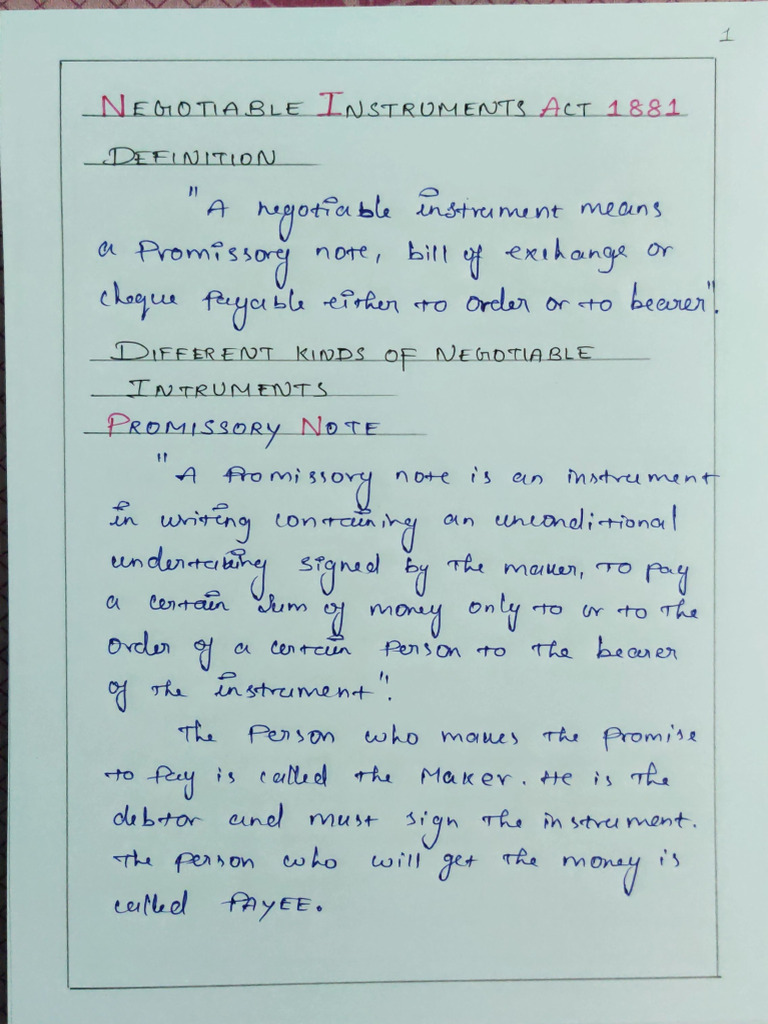 1
NEGOTIABLE INSTRUMENTS ACT 1881
DEFINITION
"A negotiable instrument means
a Promissory note, bill of exchange or
cheque payable either to order or to bearer".
DIFFERENT KINDS OF NEGOTIABLE
INTRUMENTS
PROMISSORY NOTE
"A Promissory note is an instrument
in writing containing an unconditional
undertaking signed by the maker, to pay
a certain sum of money only to or to the
order of a certain Person to the bearer
of the instrument".
The Person who makes the promise
to pay is called the Maker. He is the
debtor and must sign the instrument.
The person who will get the money is
called PAYEE.